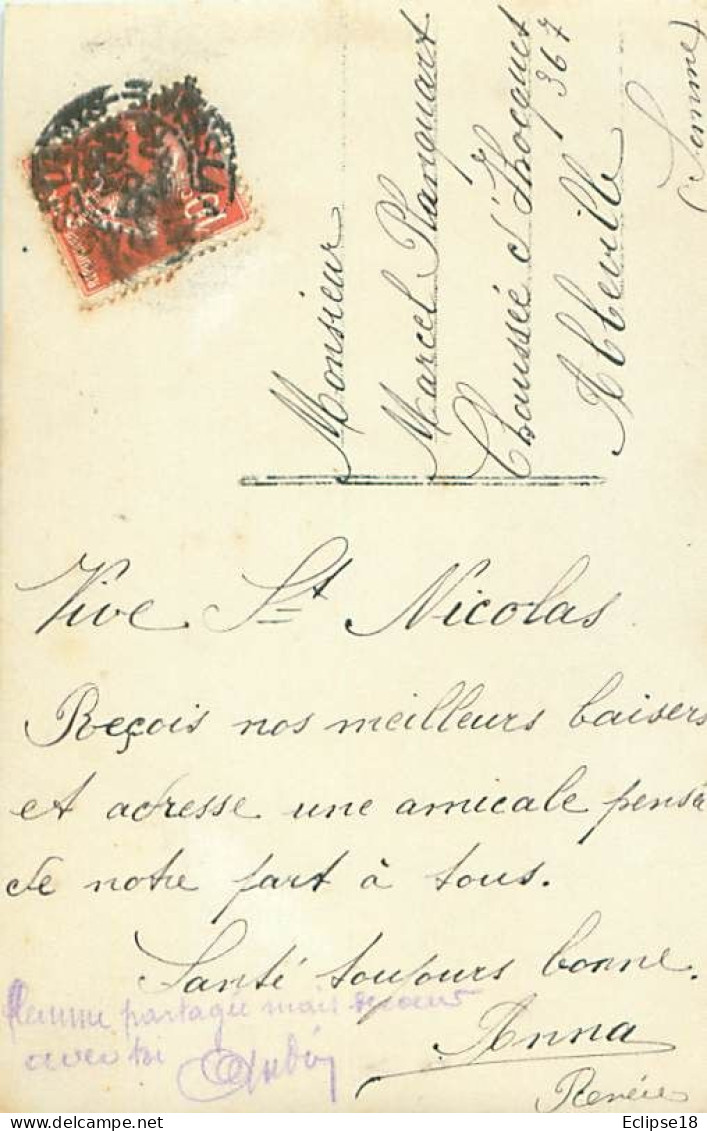 Monsieur
Marcel Planquart
Chaussée d'Hocquet
367
Abbeville
(Somme)
Vive St Nicolas
Reçois nos meilleurs baisers
et adresse une amicale pensé
de notre part à tous.
Santé toujours bonne.
Anna
Renée
partagée mais
avec toi
10
Eclipse18